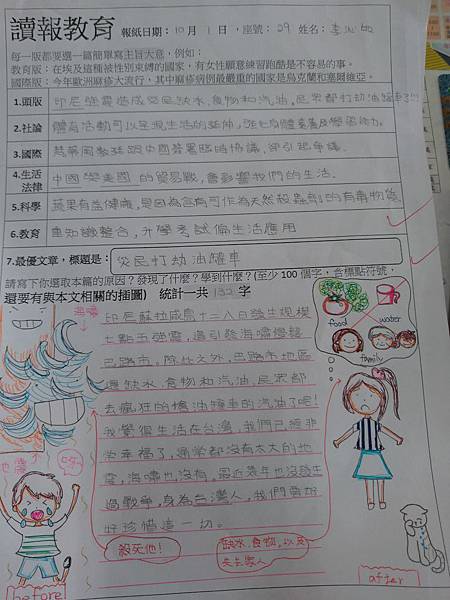 讀報教育 報紙日期：10月1日，座號：29 姓名：李
每一版都要選一篇簡單寫主旨大意，例如：
教育版：在埃及這種被性別束縛的國家，有女性願意練習跑酷是不容易的事。
國際版：今年歐洲麻疹大流行，其中麻疹病例最嚴重的國家是烏克蘭和塞爾維亞。
1.頭版 印尼強震造成災民缺水、食物和汽油，民眾都打劫油罐車了!!!
2.社論 體育活動可以是現生活的延伸，強化身體素養及學習能力。
3.國際 梵蒂岡教廷跟中國簽署臨時協議，卻引起爭議。
4.生活法律 中國與美國的貿易戰，會影響我們的生活。
5.科學 蔬果有益健康，是因為含有可作為天然殺蟲劑的有毒物質
6.教育 重知識整合，升學考試偏生活應用
7.最優文章，標題是： 災民打劫油罐車
請寫下你選取本篇的原因？發現了什麼？學到什麼？(至少 100 個字，含標點符號，
還要有與本文相關的插圖) 統計一共132字
海嘯
印尼蘇拉威島十二八日發生規模
七點五強震，還引發海嘯侵襲
巴路市。除此之外，巴路市地區
還缺水、食物和汽油，民眾都
去瘋狂的搶油罐車的汽油了呢!
我覺得生活在台灣，我們已經非
常幸福了，通常都沒有太大的地
震，海嘯也沒有，最近幾年也沒發生
過戰爭，身為台灣人，我們要好
好珍惜這一切。
food
water
family
地震
救命!
缺水、食物，以及
失去家人
before
after